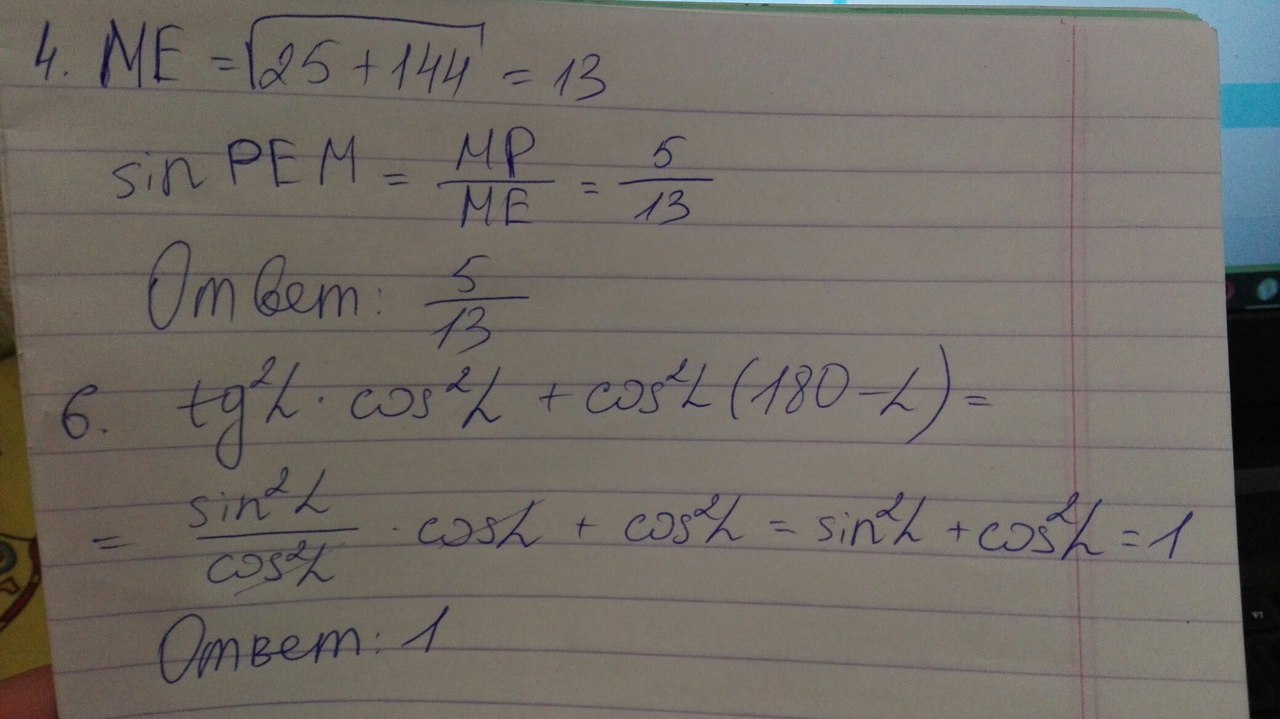 4. ME = √(25 + 144) = 13
sin PEM = MP/ME = 5/13
Ответ: 5/13
6. tg²α · cos²α + cos²α (180 - α) =
= sin²α/cos²α · cosα + cos²α = sin²α + cos²α = 1
Ответ: 1